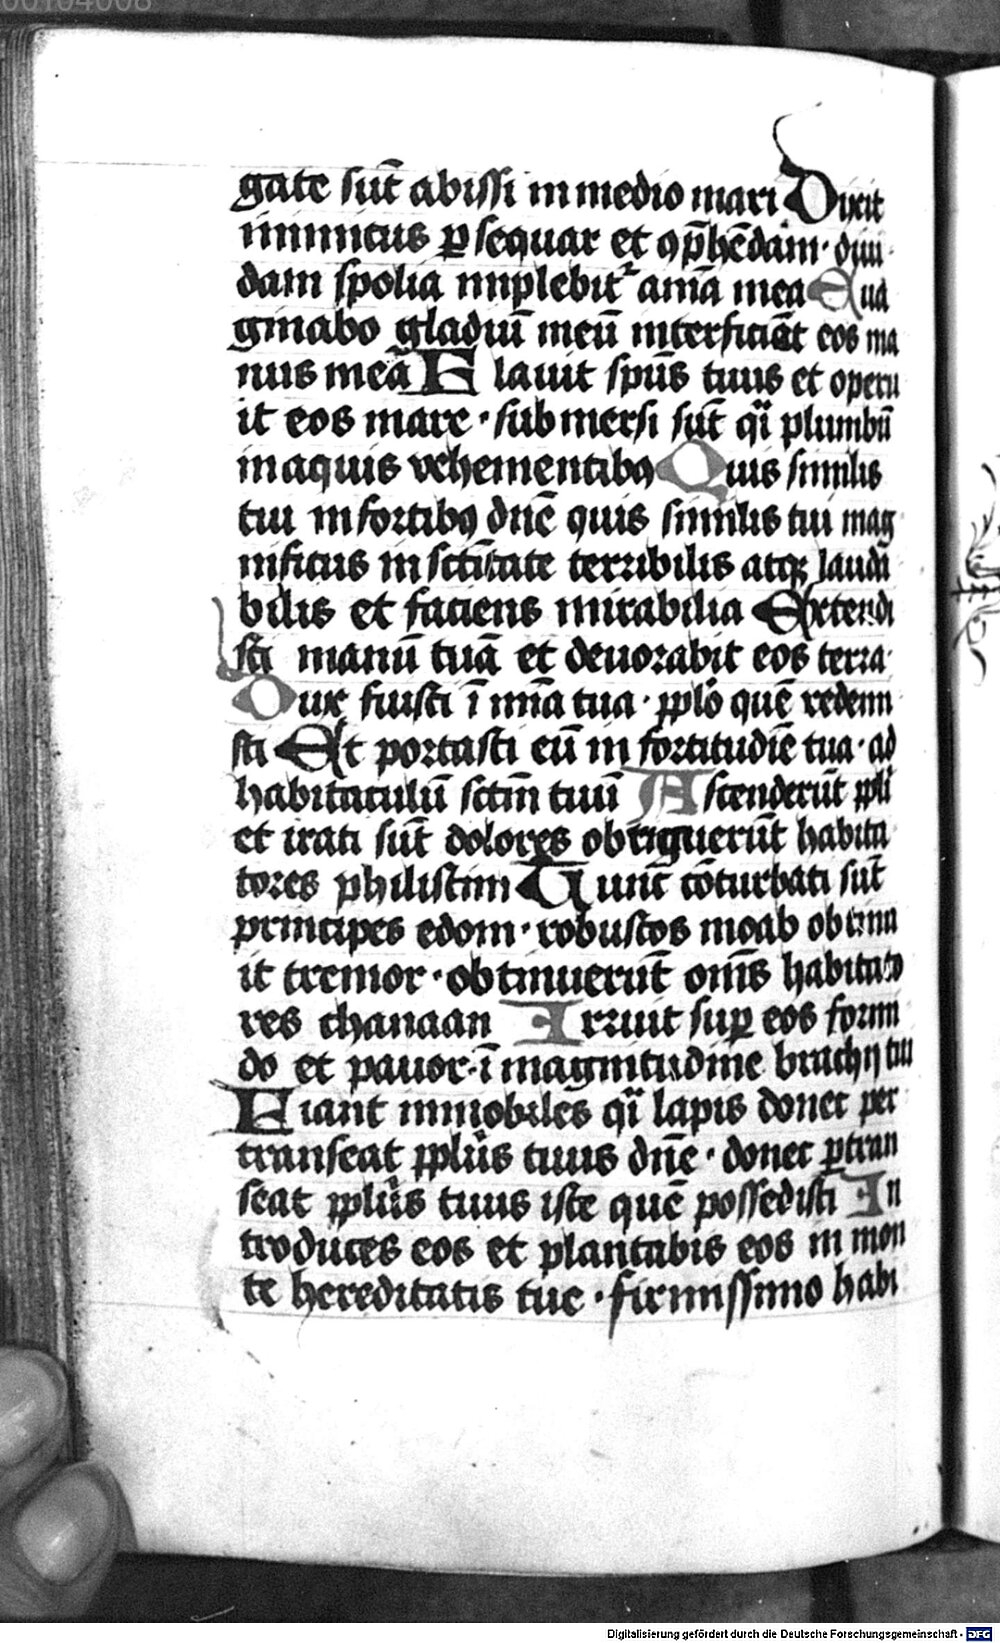 00104008
gate sūt abissi in medio mari Dixit
inimicus ꝑsequar et ꝯp̄hēdam · diui
dam spolia implebit᷑ aīa mea Eua
ginabo gladiū meū interficiāt eos ma
nus meā Flauit spūs tuus et operu
it eos mare · submersi sūt qͥ plumbū
in aquis vehementibꝯ Quis similis
tui in fortibꝯ dn̄e quis similis tui mag
nificus in sctītate terribilis atqꝫ laudā
bilis et faciens mirabilia Extendi
sti manū tuā et deuorabit eos terra
Dux fuisti ī mīa tua · pplō quē redemi
sti Et portasti eū in fortitudīe tua · ad
habitaculū sctm̄ tuū Ascenderūt ppli
et irati sūt dolores obtiguerūt habita
tores philistim Tunc cōturbati sūt
principes edom · robustos moab obtinu
it tremor · obtinuerūt om̄s habitato
res chanaan Irruit suꝑ eos formi
do et pauor · ī magnitudine brachij tui
Fiant immobiles qͥ lapis donec per
transeat pplūs tuus dn̄e · donec ꝑtran
seat pplūs tuus iste quē possedisti In
troduces eos et plantabis eos in mon
te hereditatis tue · firmissimo habi
Digitalisierung gefördert durch die Deutsche Forschungsgemeinschaft - DFG